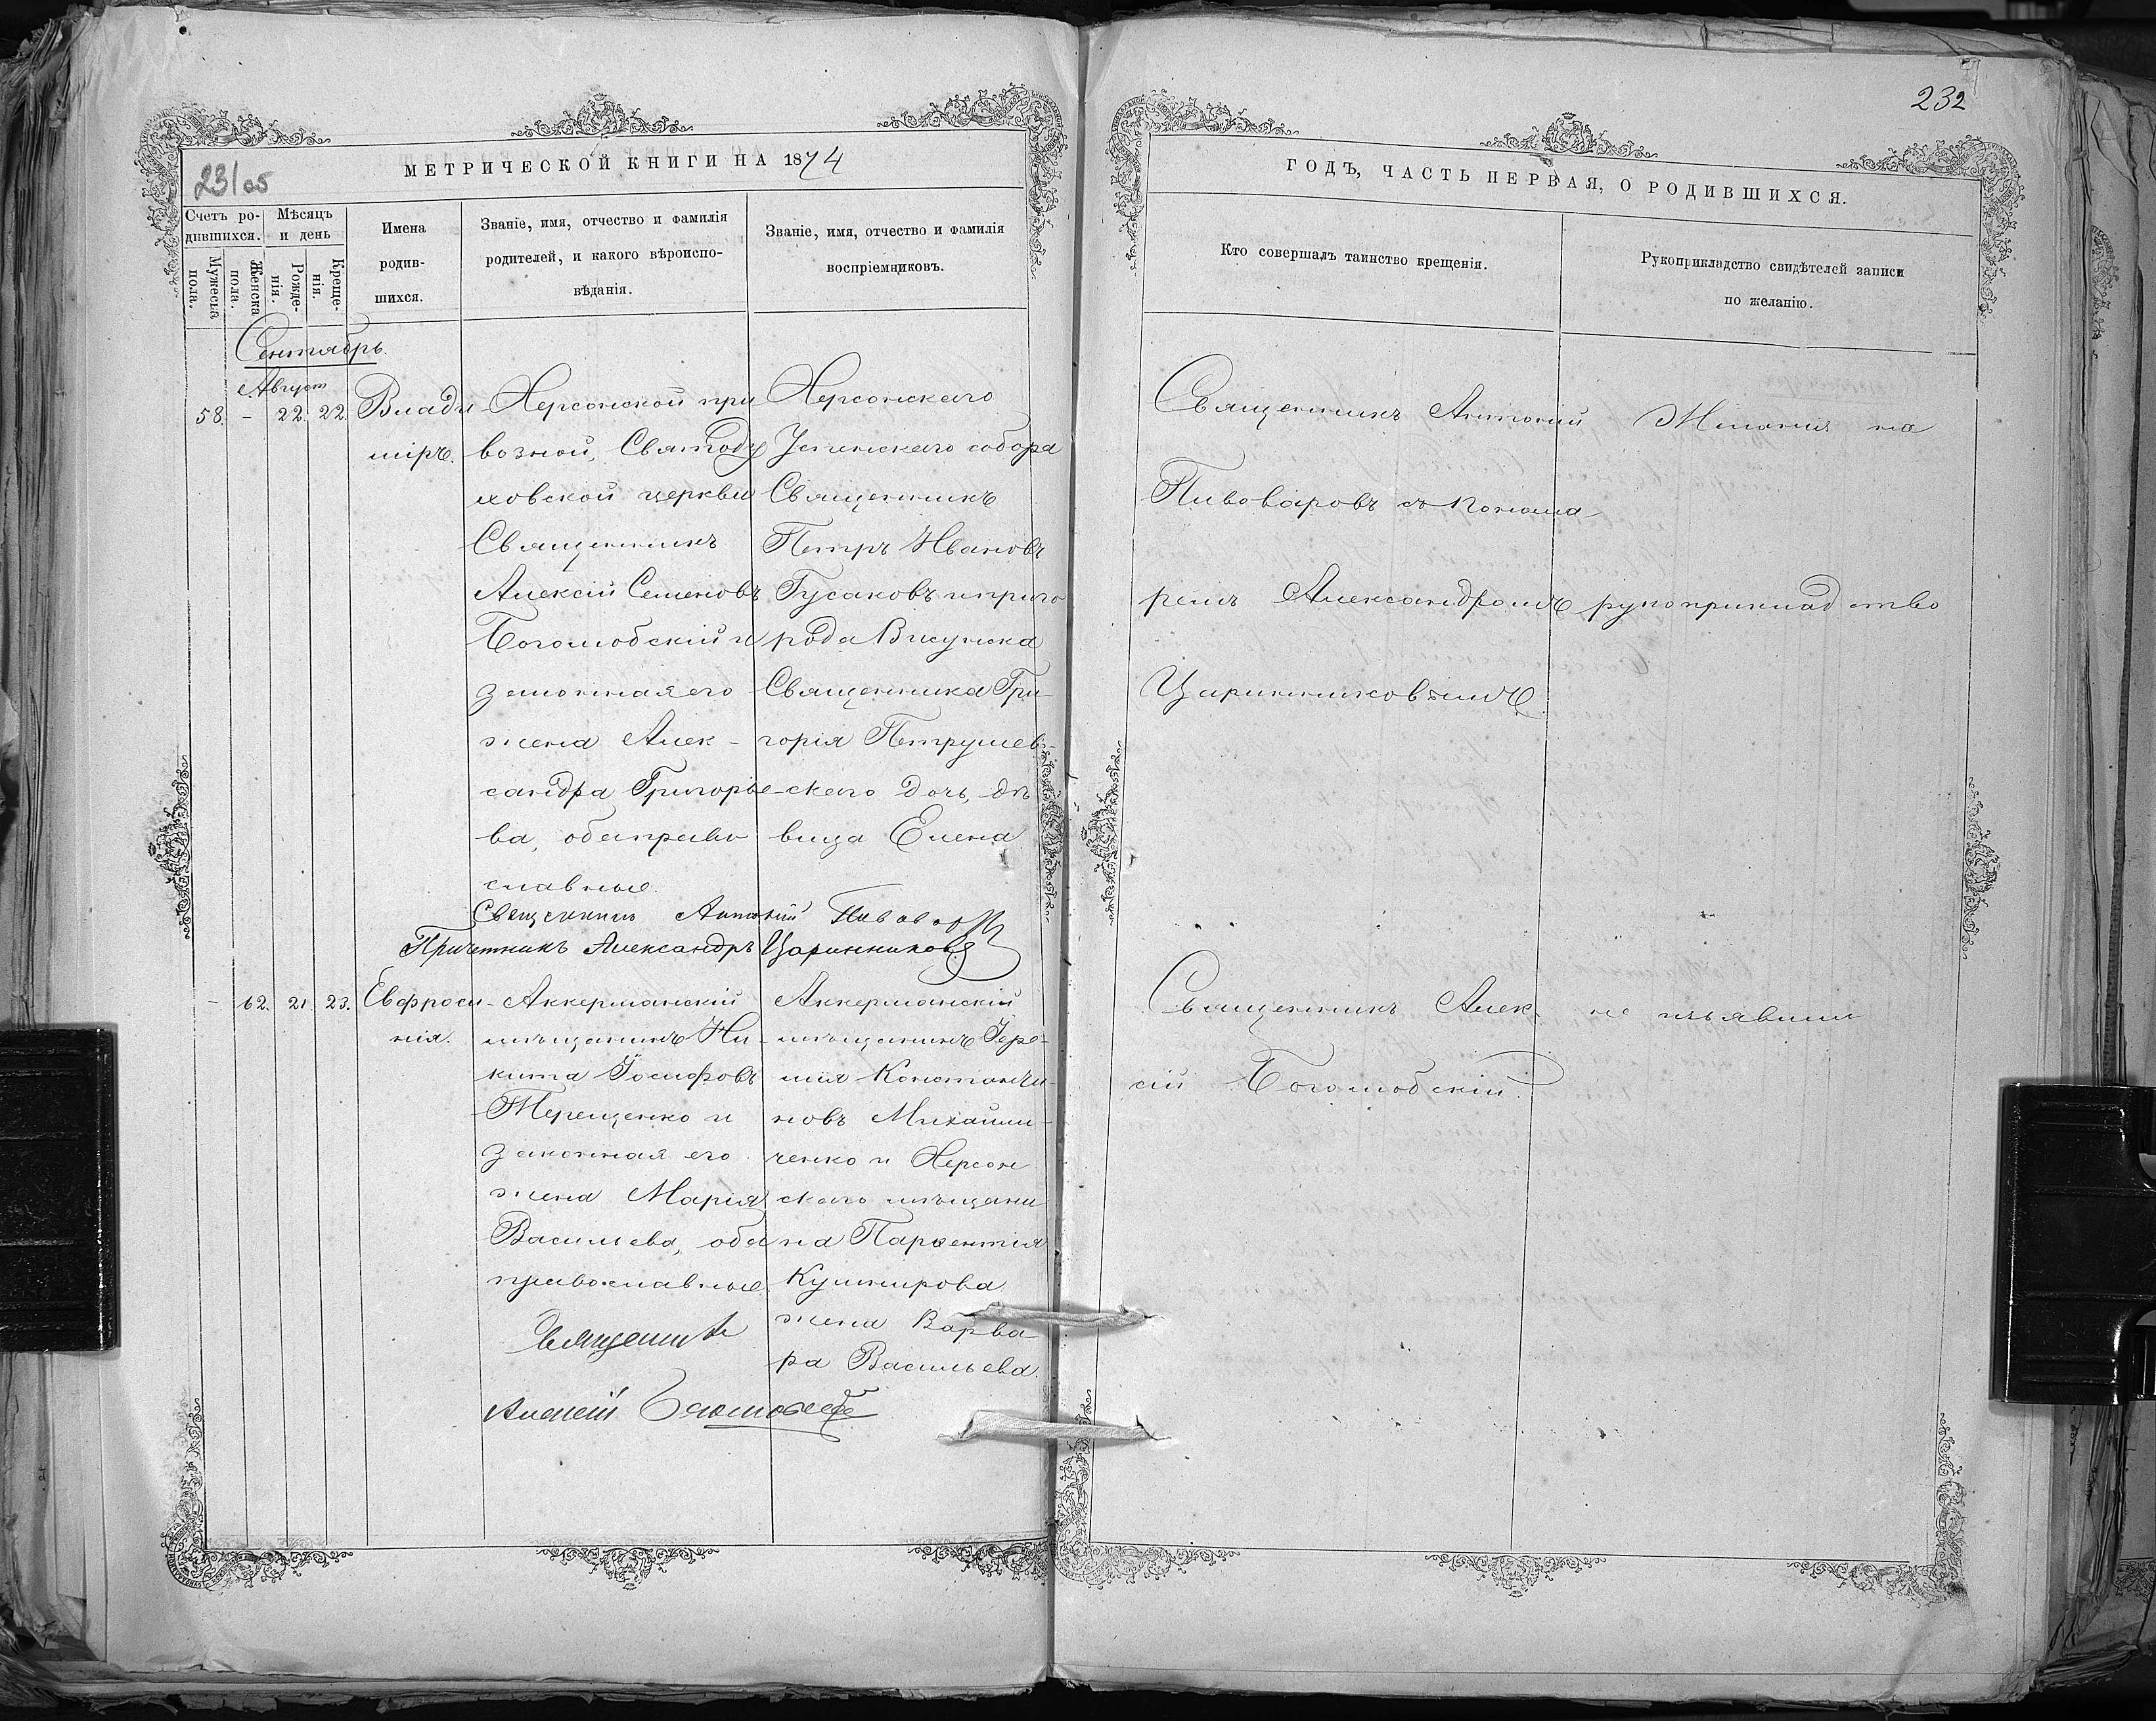 232
231 об
МЕТРИЧЕСКОЙ КНИГИ НА 1874
ГОДЪ, ЧАСТЬ ПЕРВАЯ, О РОДИВШИХСЯ.
Счетъ ро-
дившихся.
Мужеска
пола.
Женска
пола.
Мѣсяцъ
и день
Рожде-
нія.
Креще-
нія.
Имена
родив-
шихся.
Званіе, имя, отчество и фамилія
родителей, и какого вѣроиспо-
вѣданія.
Званіе, имя, отчество и фамилія
воспріемниковъ.
Кто совершалъ таинство крещенія.
Рукоприкладство свидѣтелей записи
по желанію.
Сентябрь.
Август
58. - 22. 22.
Влади-
міръ.
Херсонской при
возной, Святоду
ховской церкви
Священникъ
Алексій Семеновъ
Боголюбскій и
законная его
жена Алек-
сандра Григорье-
ва, оба право
славные.
Херсонского
Успенского собора
Священникъ
Петръ Ивановъ
Гусаковъ и приго
рода Висунска
Священника Гри-
горія Петрушев-
ского дочь, дѣ
вица Елена
Священникъ Антоній
Пивоваровъ съ понома
ремъ Александромъ
Царинниковымъ
Желанія на
рукоприкладство
Священникъ Антоній Пивоваровъ
Причетникъ Александръ Царинниковъ
- 62. 21. 23.
Евфроси-
нія.
Аккерманскій
мѣщанинъ Ни-
кита Іосифовъ
Терещенко и
законная его
жена Марія
Васильева, оба
православные.
Аккерманскій
мѣщанинъ Іере-
мія Константи-
новъ Михайли-
ченко и Херсон
ского мѣщани
на Парѳентія
Кушнирова
жена Варва
ра Васильева.
Священникъ Алек-
сій Боголюбскій.
не изъявили
Священникъ
Алексій Боголюбскій